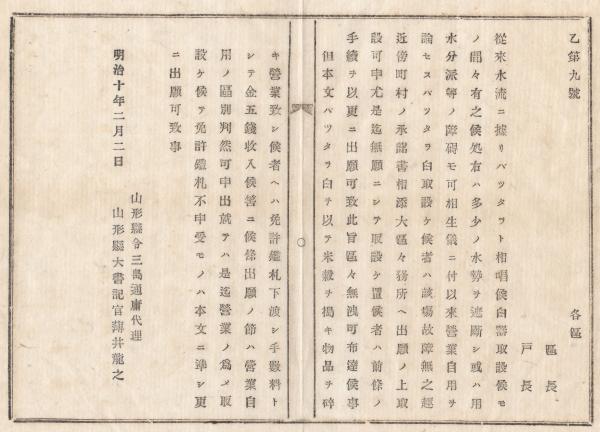 乙第九號
各區
區長
戸長
從來水流ニ據リバツタラト相唱候臼器取設候モ
ノ間々有之候処右ハ多少ノ水勢ヲ遮斷シ或ハ用
水分派等ノ障碍モ可相生儀ニ付以來營業自用ヲ
論セスバツタラ臼取設ケ候者ハ該塲故障無之趣
近傍町村ノ承諾書相添大區々務所ヘ出願ノ上取
設可申尤是迄無願ニシテ取設ケ置候者ハ前條ノ
手續ヲ以更ニ出願可致此旨區々無洩可布達候事
但本文バツタラ臼ヲ以テ米穀ヲ搗キ物品ヲ碎
キ營業致シ候者ヘハ免許鑑札下渡シ手數料ト
シテ金五錢收入候筈ニ候條出願ノ節ハ營業自
用ノ區別判然可申出就テハ是迄營業ノ爲メ取
設ケ候テ免許鑑札不申受モノハ本文ニ準シ更
ニ出願可致事
明治十年二月二日
山形縣令三島通庸代理
山形縣大書記官薄井龍之